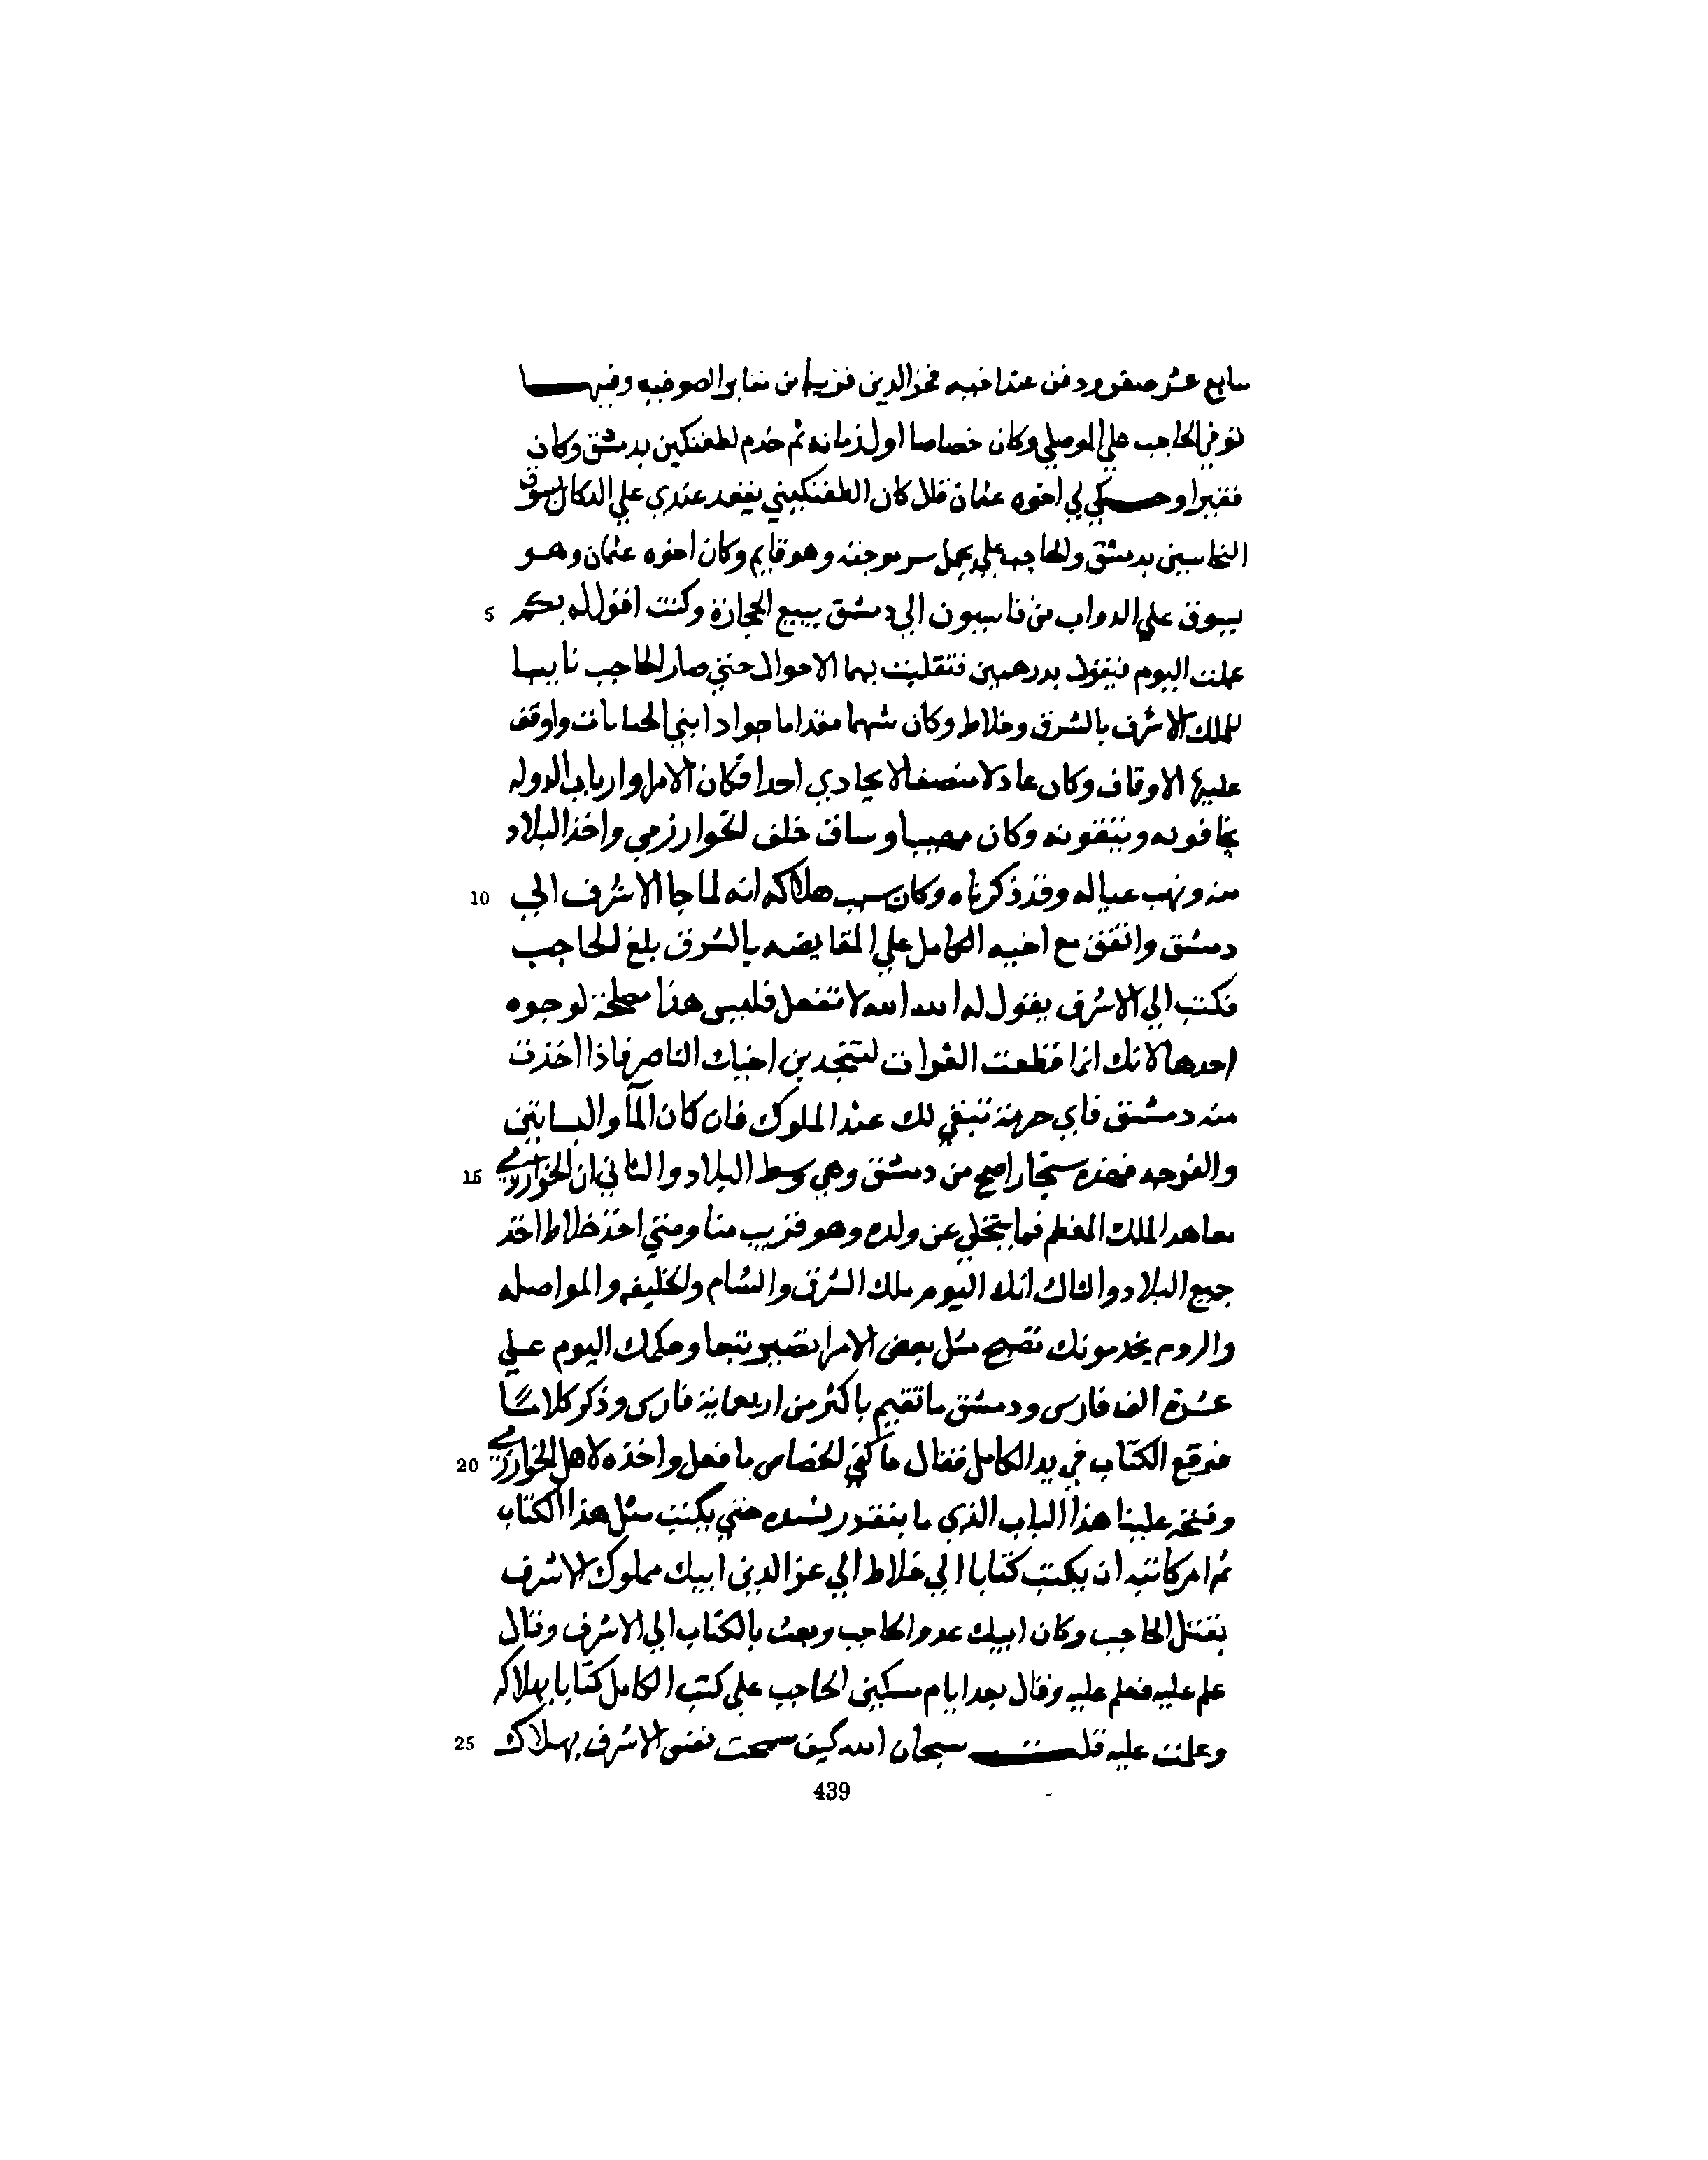 سابع عشر صفر ودفن عند اخيه فخر الدين قريبا من مقابر الصوفيه وفيها
توفي الحاجب علي الموصلي وكان خصاصا اول زمانه ثم خدم لطغتكين بدمشق وكان
فقيرا وحكي لي اخوه عثمان قال كان الطغتكيني يقعد عندي علي الدكان بسوق
النحاسين بدمشق والحاجب علي يحمل سرموجته وهو قايم وكان اخوه عثمان وهو
5 يسوق علي الدواب من قاسيون الي دمشق يبيع الحجارة وكنت اقول له بكم
عملت اليوم فيقول بدرهمين فتقلبت بهما الاحوال حتي صار الحاجب نايبا
للملك الاشرف بالشرق وخلاط وكان شهما مقداما جوادا بني الخانات واوقف
عليها الاوقاف وكان عادلا منصفا لا يحادي احدا فكان الامرا وارباب الدوله
يخافونه ويتقونه وكان مهيبا وساق خلف الخوارزمي واخذ البلاد
10 منه ونهب عياله وقد ذكرناه وكان سبب هلاكه انه لما جا الاشرف الي
دمشق واتفق مع اخيه الكامل علي المقايضه بالشرق بلغ الحاجب
فكتب الي الاشرف يقول له الله الله لا تفعل فليس هذا مصلحة لوجوه
احدها لانك انما قطعت الفرات لتنجد بن اخيك الناصر فاذا اخذت
منه دمشق فاي حرمة تبقي لك عند الملوك فان كان المآ والبساتين
15 والفرجه فهذه سنجار اصح من دمشق وهي وسط البلاد والثاني ان الخوارزمي
معاهد الملك المعظم فما يتخلي عن ولده وهو قريب منا ومتي اخذ خلاط اخذ
جميع البلاد والثالث انك اليوم ملك الشرق والشام والخليفه والمواصله
والروم يخدمونك تصبح مثل بعض الامرا تصير تبعا وحكمك اليوم علي
عشرة الف فارس ودمشق ما تقيم باكثر من اربعماية فارس وذكر كلامًا
20 فوقع الكتاب في يد الكامل فقال ما كفي الخصاص ما فعل واخذه لاهل الخوارزمي
وفتح علينا هذا الباب الذي ما ينقدر نسده حتي يكتب مثل هذا الكتاب
ثم امر كاتبه ان يكتب كتابا الي خلاط الي عز الدين ايبك مملوك الاشرف
بقتل الحاجب وكان ايبك عدو الحاجب وبعث بالكتاب الي الاشرف وقال
علم عليه فعلم عليه وقال بعد ايام مسكين الحاجب علي كتب الكامل كتابا بهلاكه
25 وعلمت عليه قلت سبحان الله كيف سمحت نفس الاشرف بهلاك
439